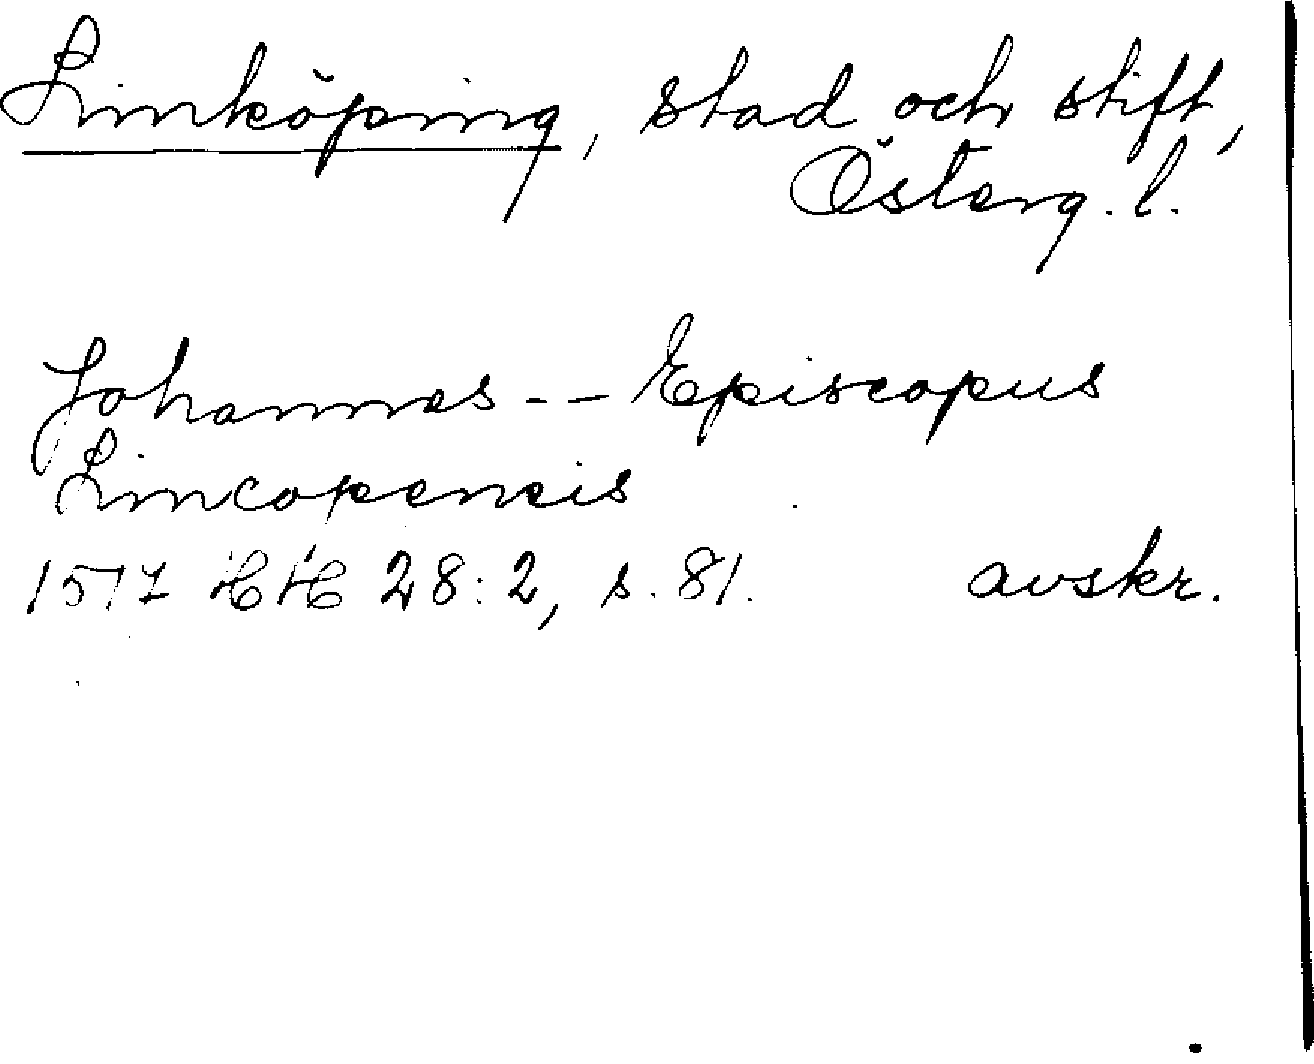 Linköping, stad och stift,
Österg. l.
Johannes -- Episcopus
Lincopensis
1517 HH 28:2, s. 81. avskr.